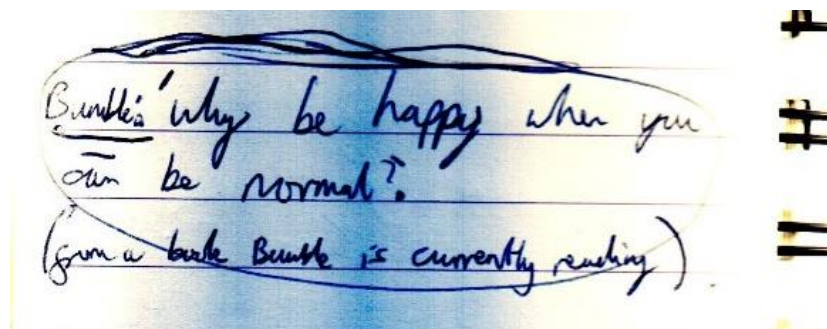 Bumble: 'why be happy when you
can be normal?'
(from a book Bumble is currently reading).